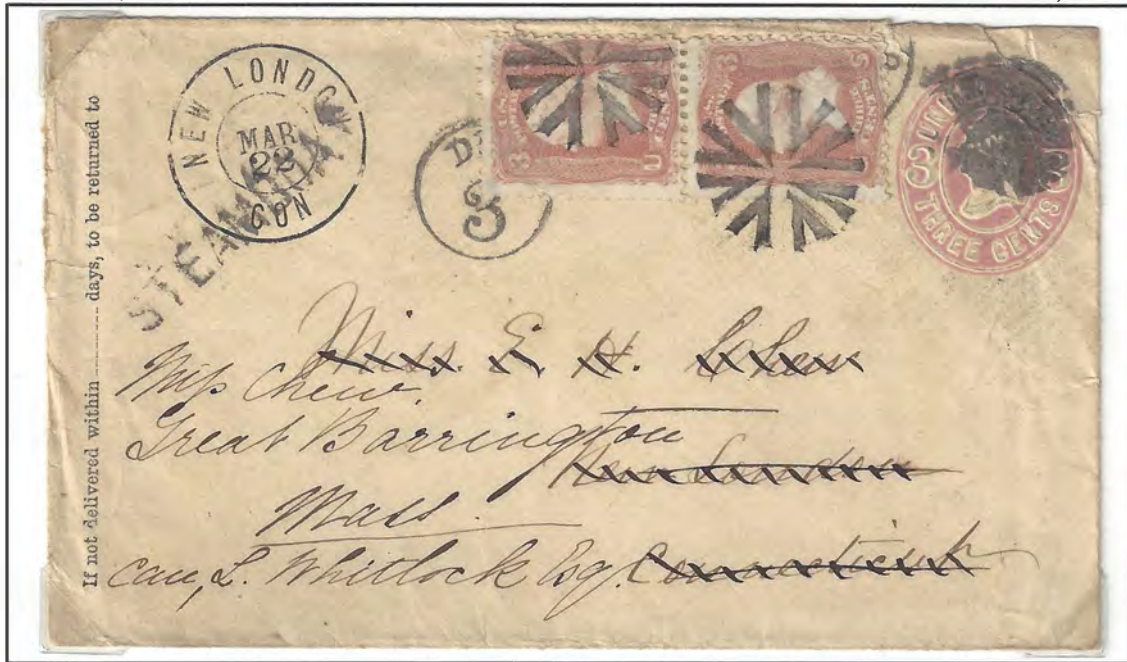 If not delivered within ---------- days, to be returned to
NEW LONDON
MAR
22
CON
STEAMBOAT
DUE
3
3 3
3 U
UNI
3
THREE CENTS
Miss. E. H. Chew
Miss Chew.
Great Barrington
New London
Mass.
care, L. Whitlock Esq. Connecticut